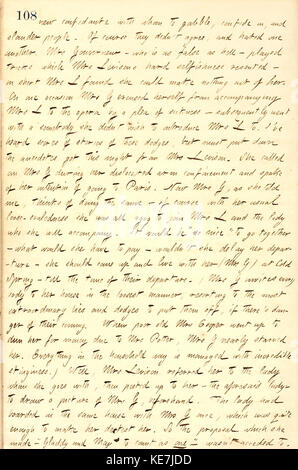 108
new confidante with whom to gabble, confide in, and
slander people. Of course they didn't agree, and hated one
another. Mrs Gouverneur — who is as false as hell — played
tricks which Mrs Levison's hard selfishness resented —
in short Mrs L found she could make nothing out of her.
On one occasion Mrs G excused herself from accompanying
Mrs L to the opera by a plea of sickness — subsequently went
with a somebody she didn't wish to introduce Mrs L to. I've
heard scores of stories of these dodges, but must put down
the anecdotes got this night from Mrs Levison. She called
on Mrs G during her confinement and spoke
of her intention of going to Paris. Now Mrs G, as she told
me, thinks of doing the same — of course with her usual
she was all agog to join Mrs L and the lady
who she will accompany. It would be so nice to go together
— what would she have to pay — wouldn't she delay her depar-
ture — she should come up and live with her (Mrs G) at Cold
Spring till the time of their departure. (Mrs G invites every
body to her house in the loosest manner, resorting to the most
extraordinary lies and dodges to put them off, if there's dan-
ger of their coming. When poor old Mrs Cooper went up to
dun her for money due to Mrs Potter, Mrs G nearly starved
her. Everything in the household way is managed with incredible
stinginess.) Well Mrs Levison referred her to the lady
whom she goes with, then posted up to her — the aforesaid lady —
to draw a picture of Mrs G, aforehand. The lady had
boarded in the same house with Mrs G once, which was quite
enough to make her detest her. So the proposal which she
made — "Gladdy and May" to count as one — wasn't acceded to.
alamy
KE7JDD